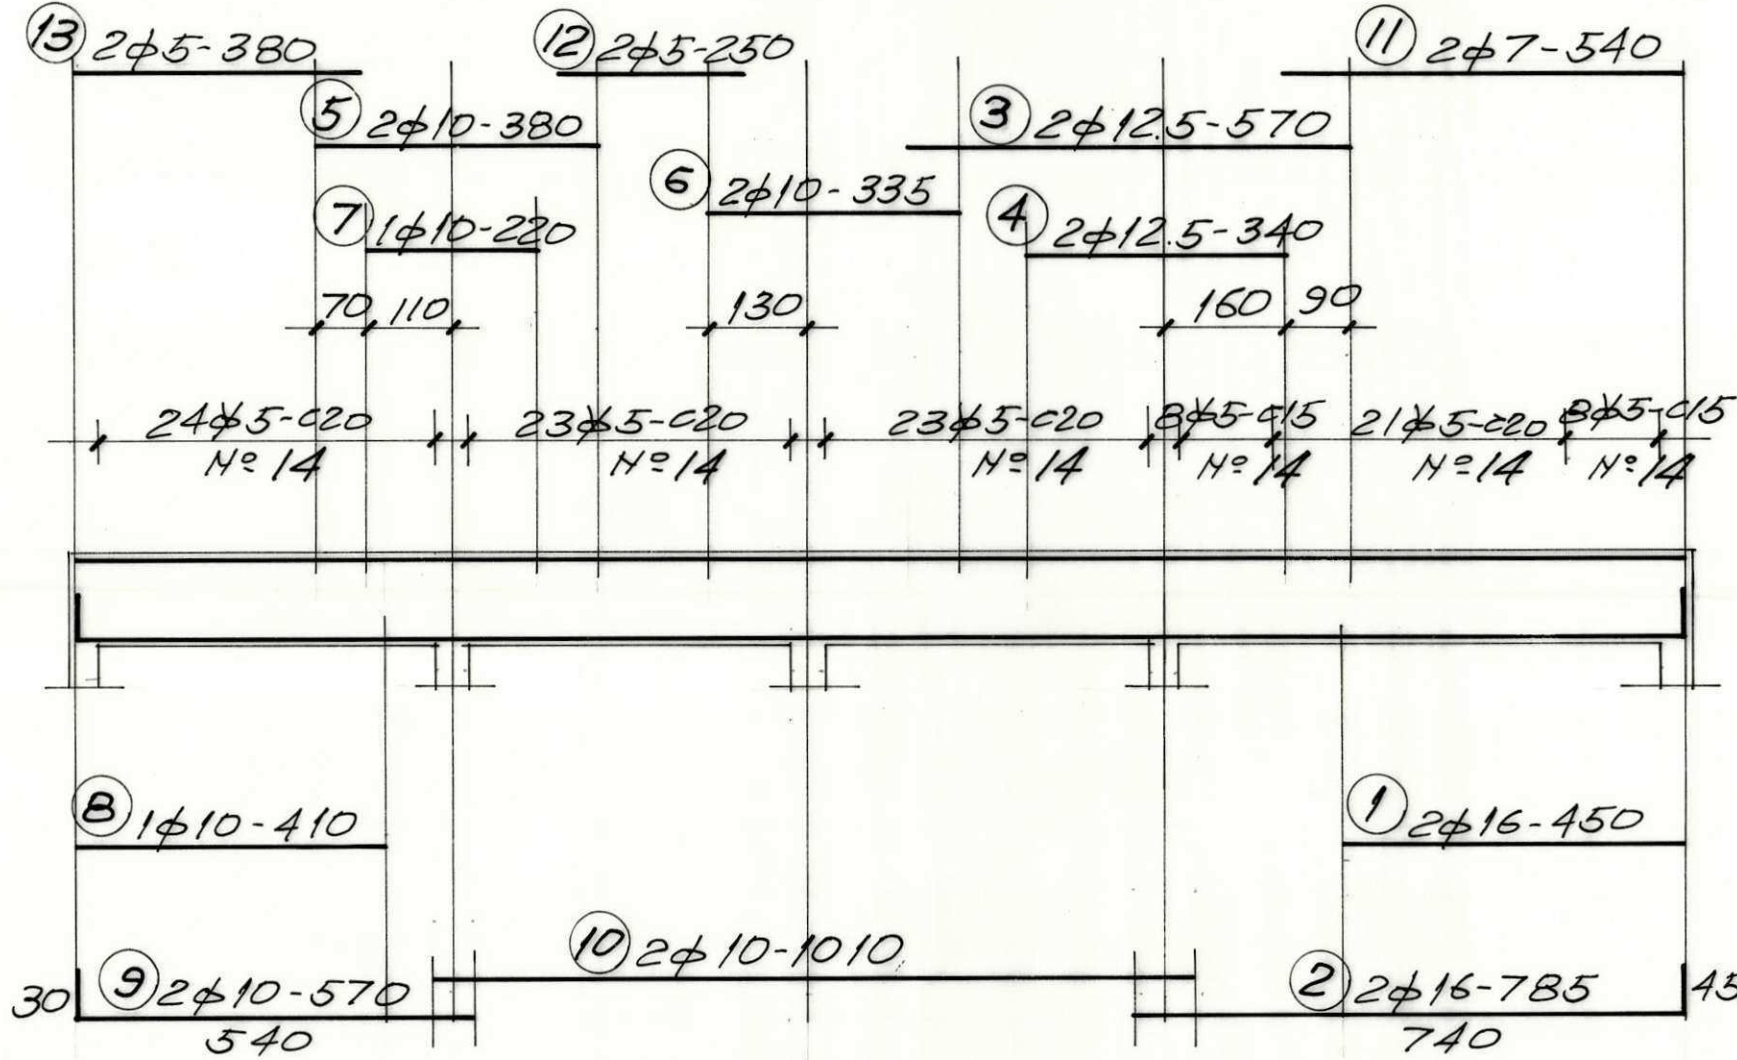 13 2ϕ5-380
12 2ϕ5-250
11 2ϕ7-540
5 2ϕ10-380
3 2ϕ12.5-570
6 2ϕ10-335
7 1ϕ10-220
4 2ϕ12.5-340
70 110
130
160 90
24ϕ5-c20
Nº 14
23ϕ5-c20
Nº 14
23ϕ5-c20
Nº 14
8ϕ5-c15
Nº 14
21ϕ5-c20
Nº 14
8ϕ5-c15
Nº 14
8 1ϕ10-410
1 2ϕ16-450
10 2ϕ10-1010
30 9 2ϕ10-570
540
2 2ϕ16-785 45
740